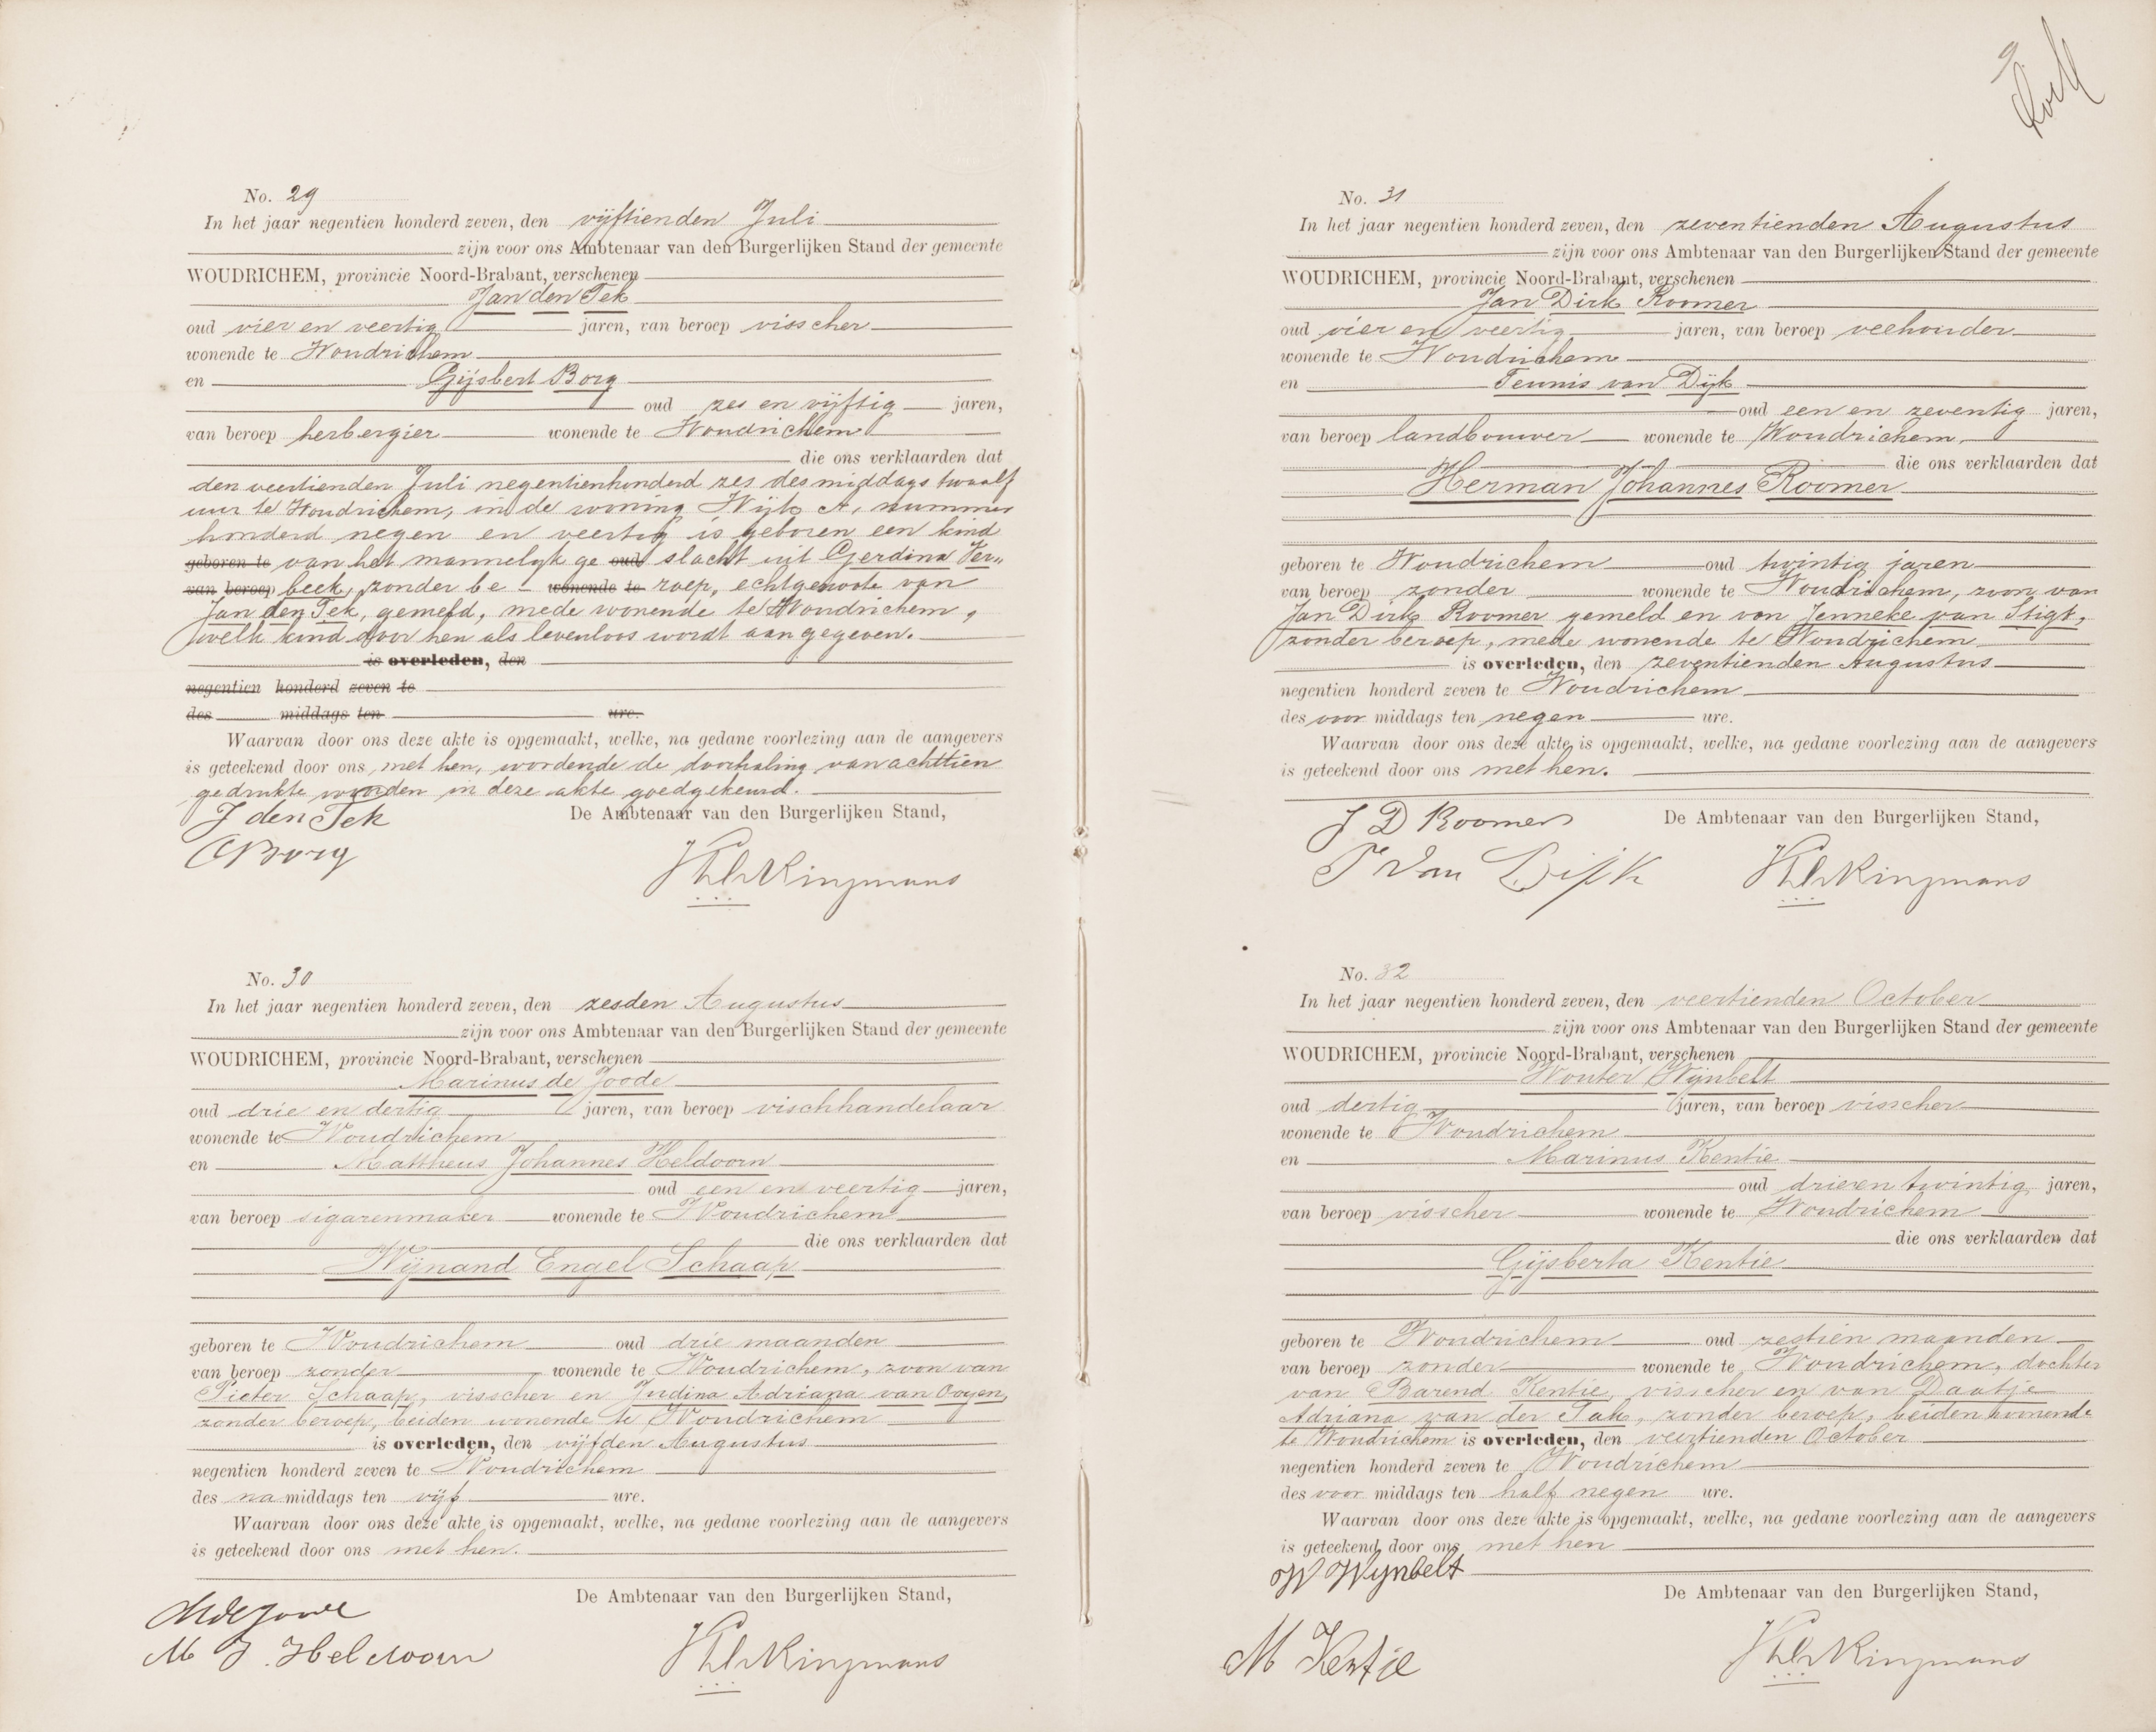 No. 29
In het jaar negentien honderd zeven, den vijftienden Juli
zijn voor ons Ambtenaar van den Burgerlijken Stand der gemeente
WOUDRICHEM, provincie Noord-Brabant, verschenen
Jan den Tek
oud vier en veertig jaren, van beroep visscher
wonende te Woudrichem
en Gijsbert Borg
oud zes en vijftig jaren,
van beroep herbergier wonende te Woudrichem
die ons verklaarden dat
den veertienden Juli negentienhonderd zes des middags twaalf
uur te Woudrichem, in de woning Wijk A, nummer
honderd negen en veertig is geboren een kind
geboren te van het mannelijk ge oud slacht uit Gerdina Ver„
van beroep beek, zonder be- wonende te roep, echtgenoote van
Jan den Tek, gemeld, mede wonende te Woudrichem,
welk kind door hen als levenloos wordt aangegeven.
is overleden, den
negentien honderd zeven te
des middags ten ure.
Waarvan door ons deze akte is opgemaakt, welke, na gedane voorlezing aan de aangevers
is geteekend door ons met hen, wordende de doorhaling van achttien
gedrukte woorden in deze akte goedgekeurd.
J den Tek
De Ambtenaar van den Burgerlijken Stand,
GBorg
No. 30
In het jaar negentien honderd zeven, den zesden Augustus
zijn voor ons Ambtenaar van den Burgerlijken Stand der gemeente
WOUDRICHEM, provincie Noord-Brabant, verschenen
Marinus de Joode
oud drie en dertig jaren, van beroep vischhandelaar
wonende te Woudrichem
en Mattheus Johannes Heldoorn
oud een en veertig jaren,
van beroep sigarenmaker wonende te Woudrichem
die ons verklaarden dat
Wijnand Engel Schaap
geboren te Woudrichem oud drie maanden
van beroep zonder wonende te Woudrichem, zoon van
Pieter Schaap, visscher en Judina Adriana van Ooyen,
zonder beroep, beiden wonende te Woudrichem
is overleden, den vijfden Augustus
negentien honderd zeven te Woudrichem
des na middags ten vijf ure.
Waarvan door ons deze akte is opgemaakt, welke, na gedane voorlezing aan de aangevers
is geteekend door ons met hen.
De Ambtenaar van den Burgerlijken Stand,
M J. Heldoorn
9
No. 31
In het jaar negentien honderd zeven, den zeventienden Augustus
zijn voor ons Ambtenaar van den Burgerlijken Stand der gemeente
WOUDRICHEM, provincie Noord-Brabant, verschenen
Jan Dirk Roomer
oud vier en veertig jaren, van beroep veehouder
wonende te Woudrichem
en Teunis van Dijk
oud een en zeventig jaren,
van beroep landbouwer wonende te Woudrichem,
die ons verklaarden dat
Herman Johannes Roomer
geboren te Woudrichem oud twintig jaren
van beroep zonder wonende te Woudrichem, zoon van
Jan Dirk Roomer gemeld en van Jenneke van Stigt,
zonder beroep, mede wonende te Woudrichem
is overleden, den zeventienden Augustus
negentien honderd zeven te Woudrichem
des voor middags ten negen ure.
Waarvan door ons deze akte is opgemaakt, welke, na gedane voorlezing aan de aangevers
is geteekend door ons met hen.
J D Roomer
De Ambtenaar van den Burgerlijken Stand,
T van Dijk
No. 32
In het jaar negentien honderd zeven, den veertienden October
zijn voor ons Ambtenaar van den Burgerlijken Stand der gemeente
WOUDRICHEM, provincie Noord-Brabant, verschenen
Wouter Wijnbelt
oud dertig jaren, van beroep visscher
wonende te Woudrichem
en Marinus Kentie
oud drieen twintig jaren,
van beroep visscher wonende te Woudrichem
die ons verklaarden dat
Gijsberta Kentie
geboren te Woudrichem oud zestien maanden
van beroep zonder wonende te Woudrichem, dochter
van Barend Kentie, visscher en van Daatje
Adriana van der Tak, zonder beroep, beiden wonende
te Woudrichem is overleden, den veertienden October
negentien honderd zeven te Woudrichem
des voor middags ten half negen ure.
Waarvan door ons deze akte is opgemaakt, welke, na gedane voorlezing aan de aangevers
is geteekend door ons met hen
W Wijnbelt
De Ambtenaar van den Burgerlijken Stand,
M Kentie